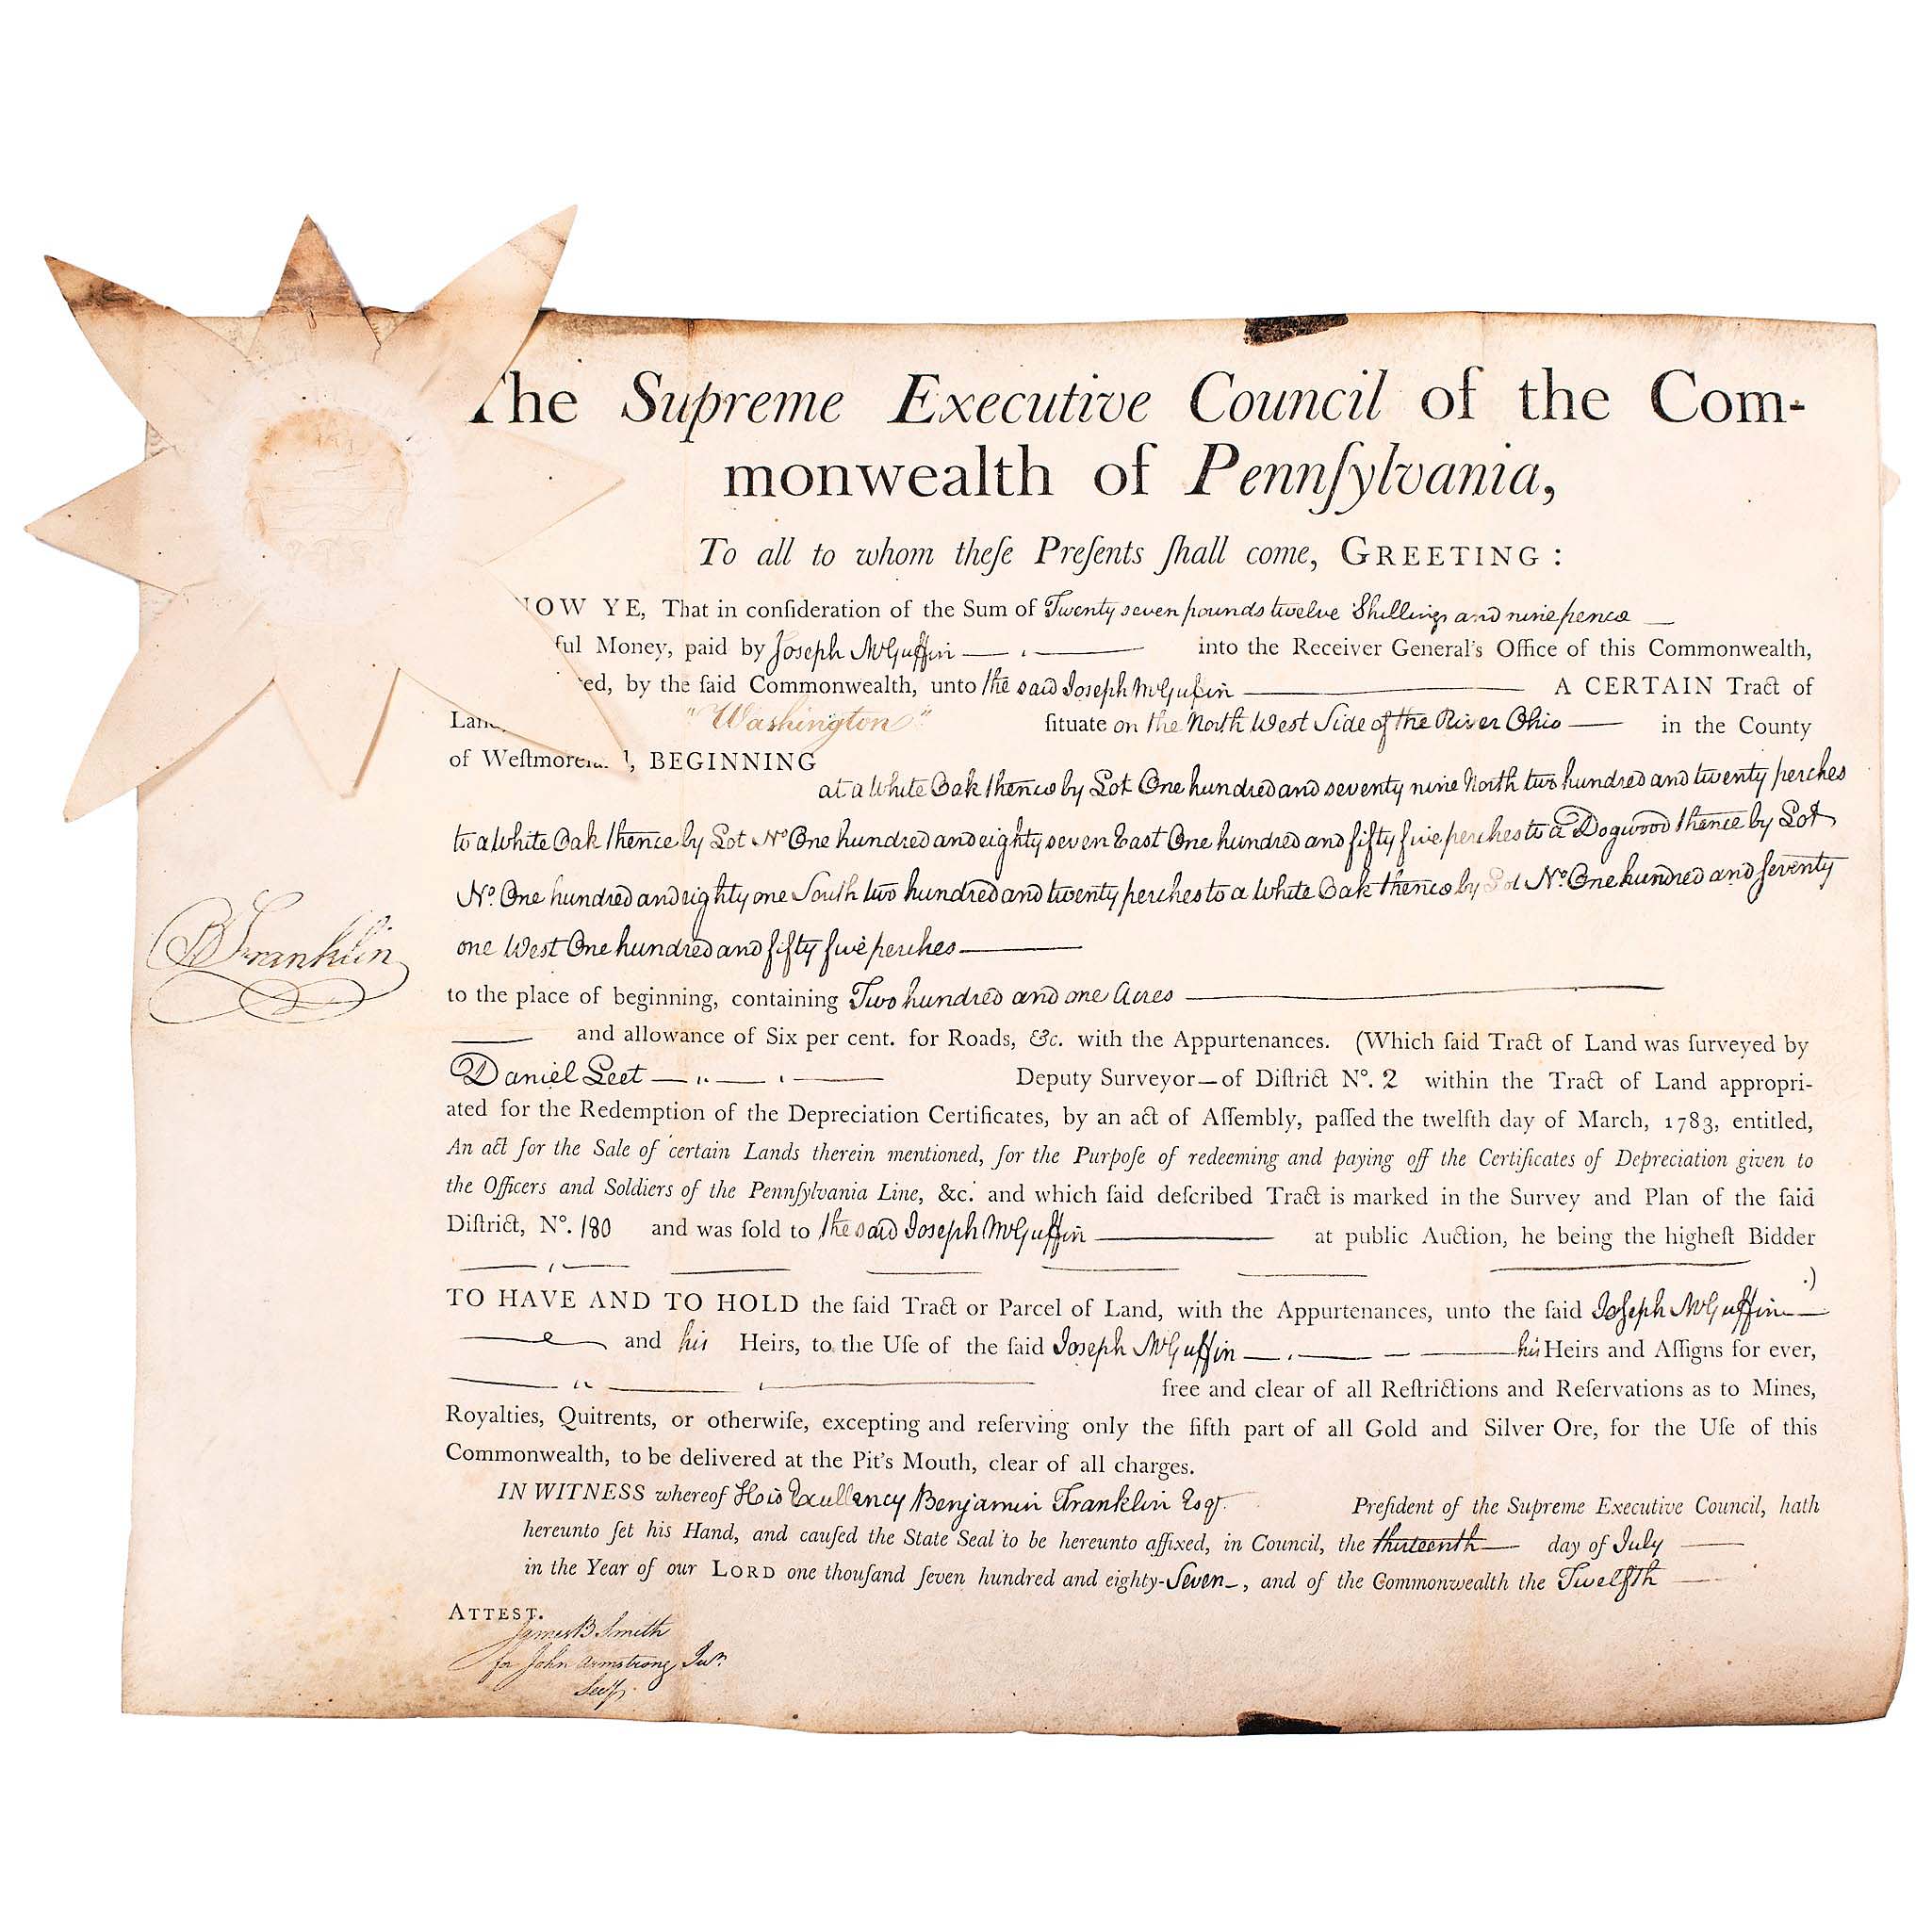 The Supreme Executive Council of the Com-
monwealth of Pennſylvania,
To all to whom theſe Preſents ſhall come, GREETING:
NOW YE, That in conſideration of the Sum of Twenty seven pounds twelve Shillings and nine pence
ful Money, paid by Joseph McGuffin into the Receiver General's Office of this Commonwealth,
ed, by the ſaid Commonwealth, unto the said Joseph McGuffin A CERTAIN Tract of
Land, "Washington" ſituate on the North West Side of the River Ohio in the County
of Weſtmorela d, BEGINNING
at a White Oak thence by Lot One hundred and seventy nine North two hundred and twenty perches
to a White Oak thence by Lot No One hundred and eighty seven East One hundred and fifty five perches to a Dogwood thence by Lot
No. One hundred and eighty one South two hundred and twenty perches to a White Oak thence by Lot No. One hundred and seventy
one West One hundred and fifty five perches
B Franklin
to the place of beginning, containing Two hundred and one Acres
and allowance of Six per cent. for Roads, &c. with the Appurtenances. (Which ſaid Tract of Land was ſurveyed by
Daniel Leet Deputy Surveyor—of Diſtrict No. 2 within the Tract of Land appropri-
ated for the Redemption of the Depreciation Certificates, by an act of Aſſembly, paſſed the twelfth day of March, 1783, entitled,
An act for the Sale of certain Lands therein mentioned, for the Purpoſe of redeeming and paying off the Certificates of Depreciation given to
the Officers and Soldiers of the Pennſylvania Line, &c. and which ſaid deſcribed Tract is marked in the Survey and Plan of the ſaid
Diſtrict, No. 180 and was ſold to the said Joseph McGuffin at public Auction, he being the higheſt Bidder
.)
TO HAVE AND TO HOLD the ſaid Tract or Parcel of Land, with the Appurtenances, unto the ſaid Joseph McGuffin
and his Heirs, to the Uſe of the ſaid Joseph McGuffin his Heirs and Aſſigns for ever,
free and clear of all Reſtrictions and Reſervations as to Mines,
Royalties, Quitrents, or otherwiſe, excepting and reſerving only the fifth part of all Gold and Silver Ore, for the Uſe of this
Commonwealth, to be delivered at the Pit's Mouth, clear of all charges.
IN WITNESS whereof His Excellency Benjamin Franklin Esqr. Preſident of the Supreme Executive Council, hath
hereunto ſet his Hand, and cauſed the State Seal to be hereunto affixed, in Council, the thirteenth day of July
in the Year of our LORD one thouſand ſeven hundred and eighty-Seven, and of the Commonwealth the Twelfth
ATTEST.
James B Smith
for John Armstrong Junr.
Secy.